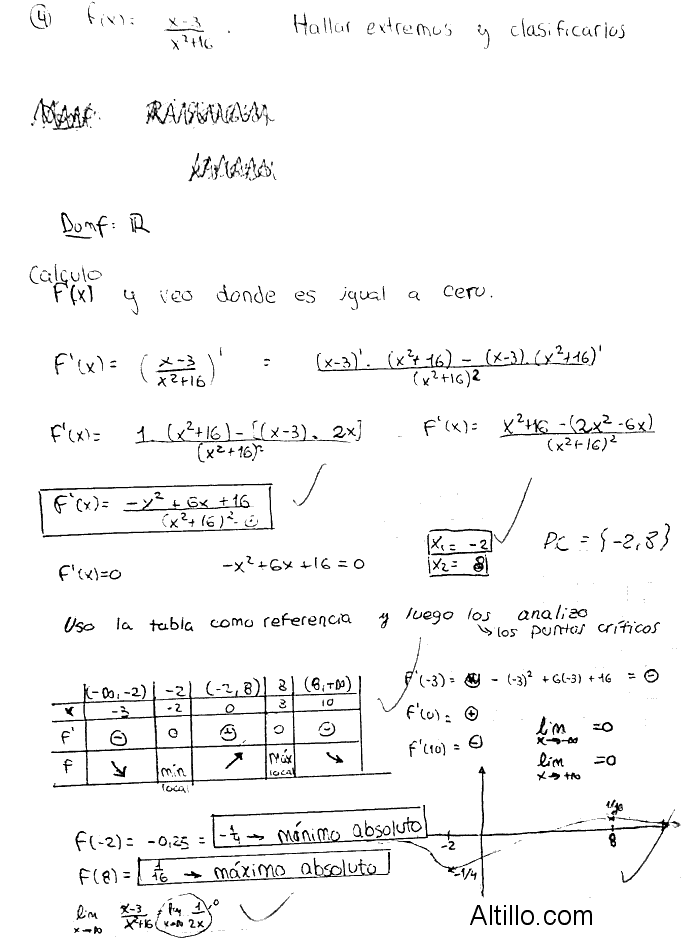 ④ f(x) = (x-3)/(x²+16) . Hallar extremos y clasificarlos
Domf: ℝ
Calculo
F'(x) y veo donde es igual a cero.
F'(x) = ((x-3)/(x²+16))' = ((x-3)' . (x²+16) - (x-3) . (x²+16)')/(x²+16)²
F'(x) = (1 . (x²+16) - [(x-3) . 2x])/(x²+16)² . F'(x) = (x²+16 - (2x²-6x))/(x²+16)²
F'(x) = (-x²+6x+16)/(x²+16)²
x₁ = -2
x₂ = 8
PC = {-2,8}
F'(x)=0 -x²+6x+16=0
Uso la tabla como referencia y luego los analizo
↳ los puntos críticos
(-∞,-2) | -2 | (-2,8) | 8 | (8,+∞)
x | -3 | -2 | 0 | 8 | 10
F' | ⊖ | 0 | ⊕ | 0 | ⊖
F | ↘ | mín local | ↗ | Máx local | ↘
F'(-3) = -(-3)² + 6(-3) + 16 = ⊖
F'(0) = ⊕
F'(10) = ⊖
lim x→-∞ = 0
lim x→+∞ = 0
F(-2) = -0,25 = -1/4 → mínimo absoluto
F(8) = 1/16 → máximo absoluto
lim x→∞ (x-3)/(x²+16) = lim x→∞ 1/2x 0
1/16
-2
8
-1/4
Altillo.com